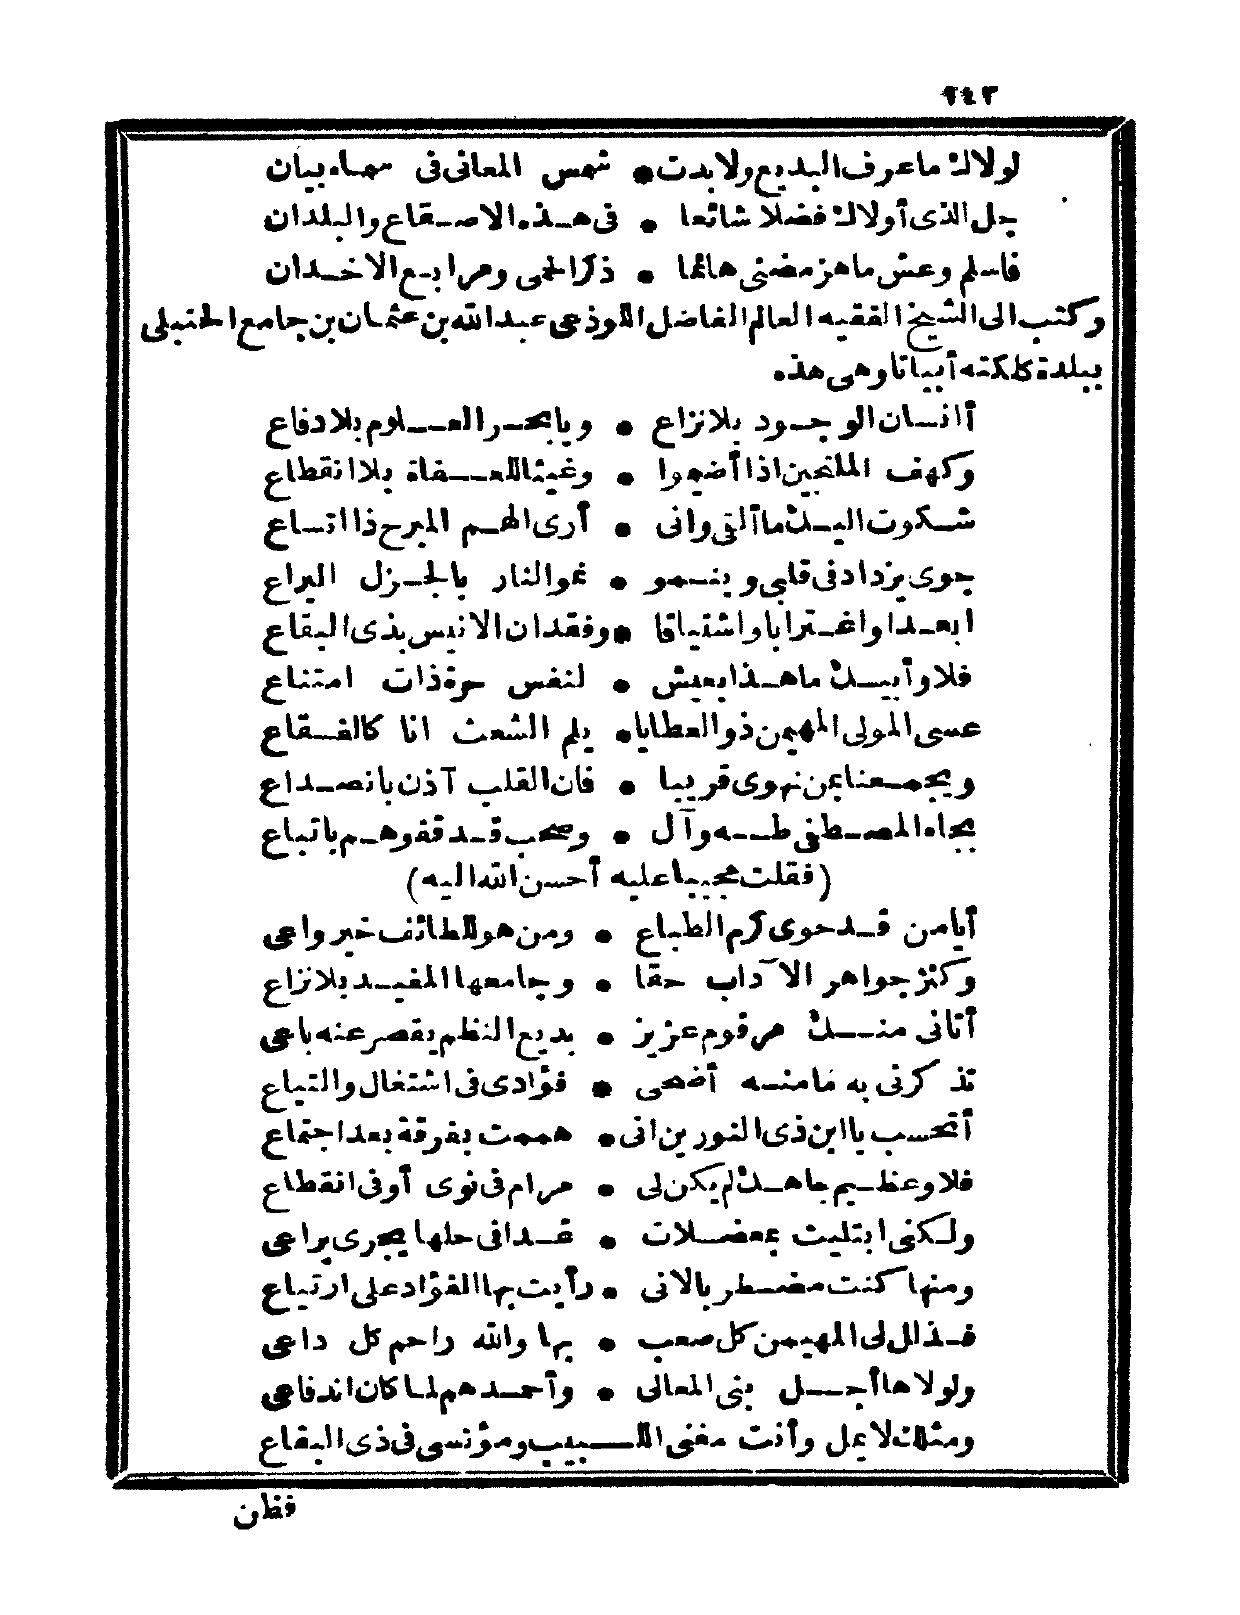 ٢٤٢
لولاك ما عرف البديع ولا بدت • شمس المعاني في سماء بيان
جل الذي أولاك فضلا شائعا • في هذه الاصقاع والبلدان
فاسلم وعش ما هز مضنى هائما • ذكر الحمى ومرابع الاخدان
وكتب الى الشيخ الفقيه العالم الفاضل اللوذعي عبد الله بن عثمان بن جامع الحنبلي
ببلدة كلكته أبياتا وهي هذه
أانسان الوجود بلا نزاع • ويا بحر العلوم بلا دفاع
وكهف الملتجين اذا أضيموا • وغيثا للعفاة بلا انقطاع
شكوت اليك ما ألقى واني • أرى الهم المبرح ذا اتساع
جوى يزداد في قلبي وينمو • نمو النار بالجزل اليراع
ابعدا واغترابا واشتياقا • وفقدان الانيس بذي البقاع
فلا وأبيك ما هذا بعيش • لنفس حرة ذات امتناع
عسى المولى المهيمن ذو العطايا • يلم الشعث انا كالفقاع
ويجمعنا بمن نهوى قريبا • فان القلب آذن بانصداع
بجاه المصطفى طه وآل • وصحب قد قفوهم باتباع
(فقلت مجيبا عليه أحسن الله اليه)
أيا من قد حوى كرم الطباع • ومن هو للطائف خير واعي
وكنز جواهر الآداب حقا • وجامعها المفيد بلا نزاع
أتاني منك مرقوم عزيز • بديع النظم يقصر عنه باعي
تذكرني به ما منه أضحى • فؤادي في اشتغال والتياع
أتحسب يا ابن ذي النورين اني • هممت بفرقة بعد اجتماع
فلا وعظيم جاهك لم يكن لي • مرام في نوى أو في انقطاع
ولكني ابتليت بمعضلات • غدا في حلها يجري يراعي
ومنها كنت مضطر بالاني • رأيت بها الفؤاد على ارتياع
فذلل لي المهيمن كل صعب • بها والله راحم كل داعي
ولولاها أجل بني المعالي • وأحمدهم لما كان اندفاعي
ومثلك لا يمل وأنت مغني اللبيب ومؤنسي في ذي البقاع
فظن